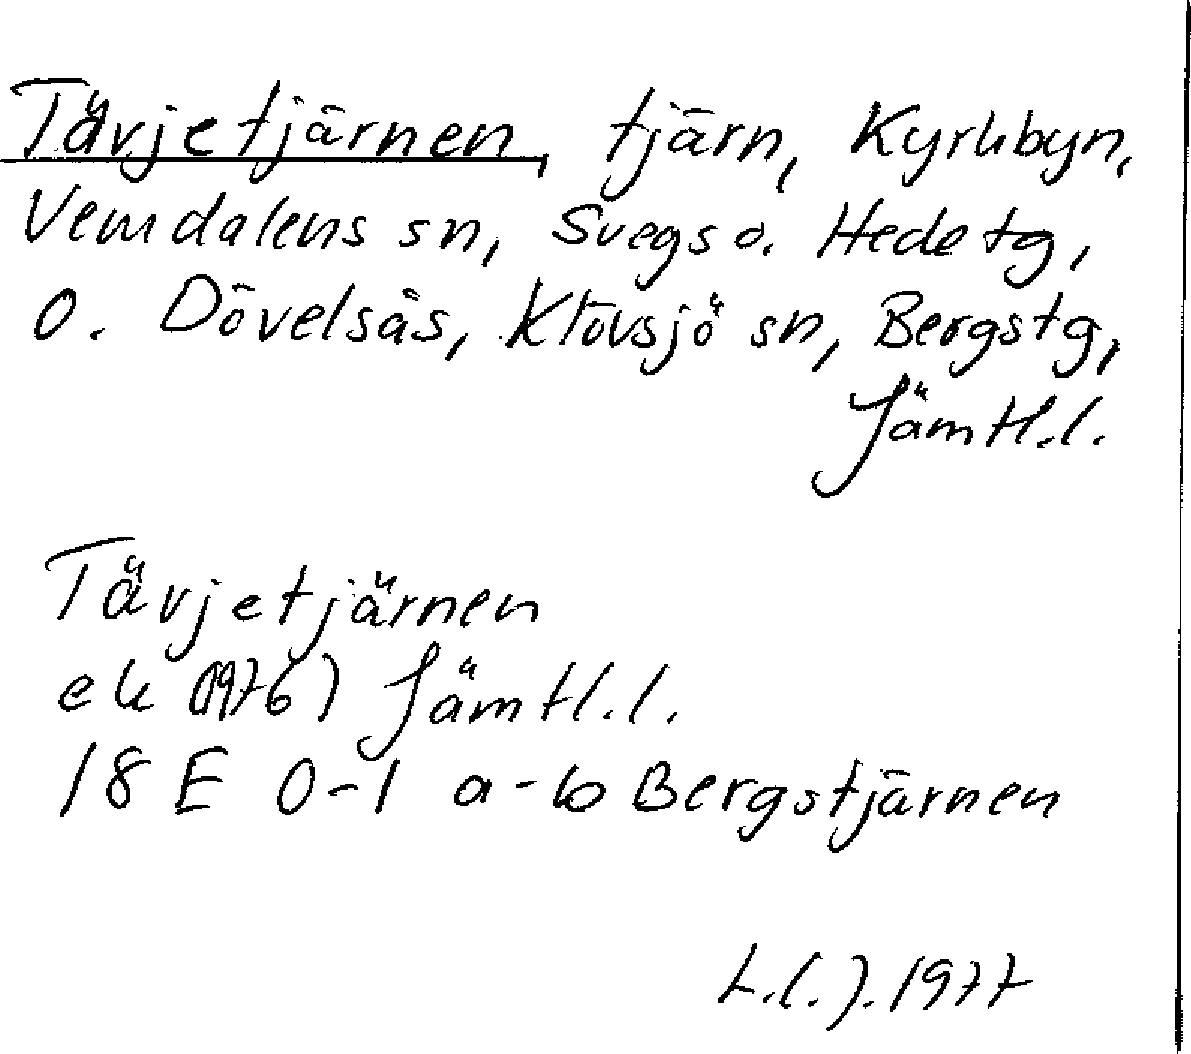 Tävjetjärnen, tjärn, Kyrkbyn,
Vemdalens sn, Svegs o. Hede tg,
o. Dövelsås, Klövsjö sn, Bergs tg,
Jämtl.l.
Tävjetjärnen
ek (1976) Jämtl.l.
18 E 0-1 a-b Bergstjärnen
L.(.).1977